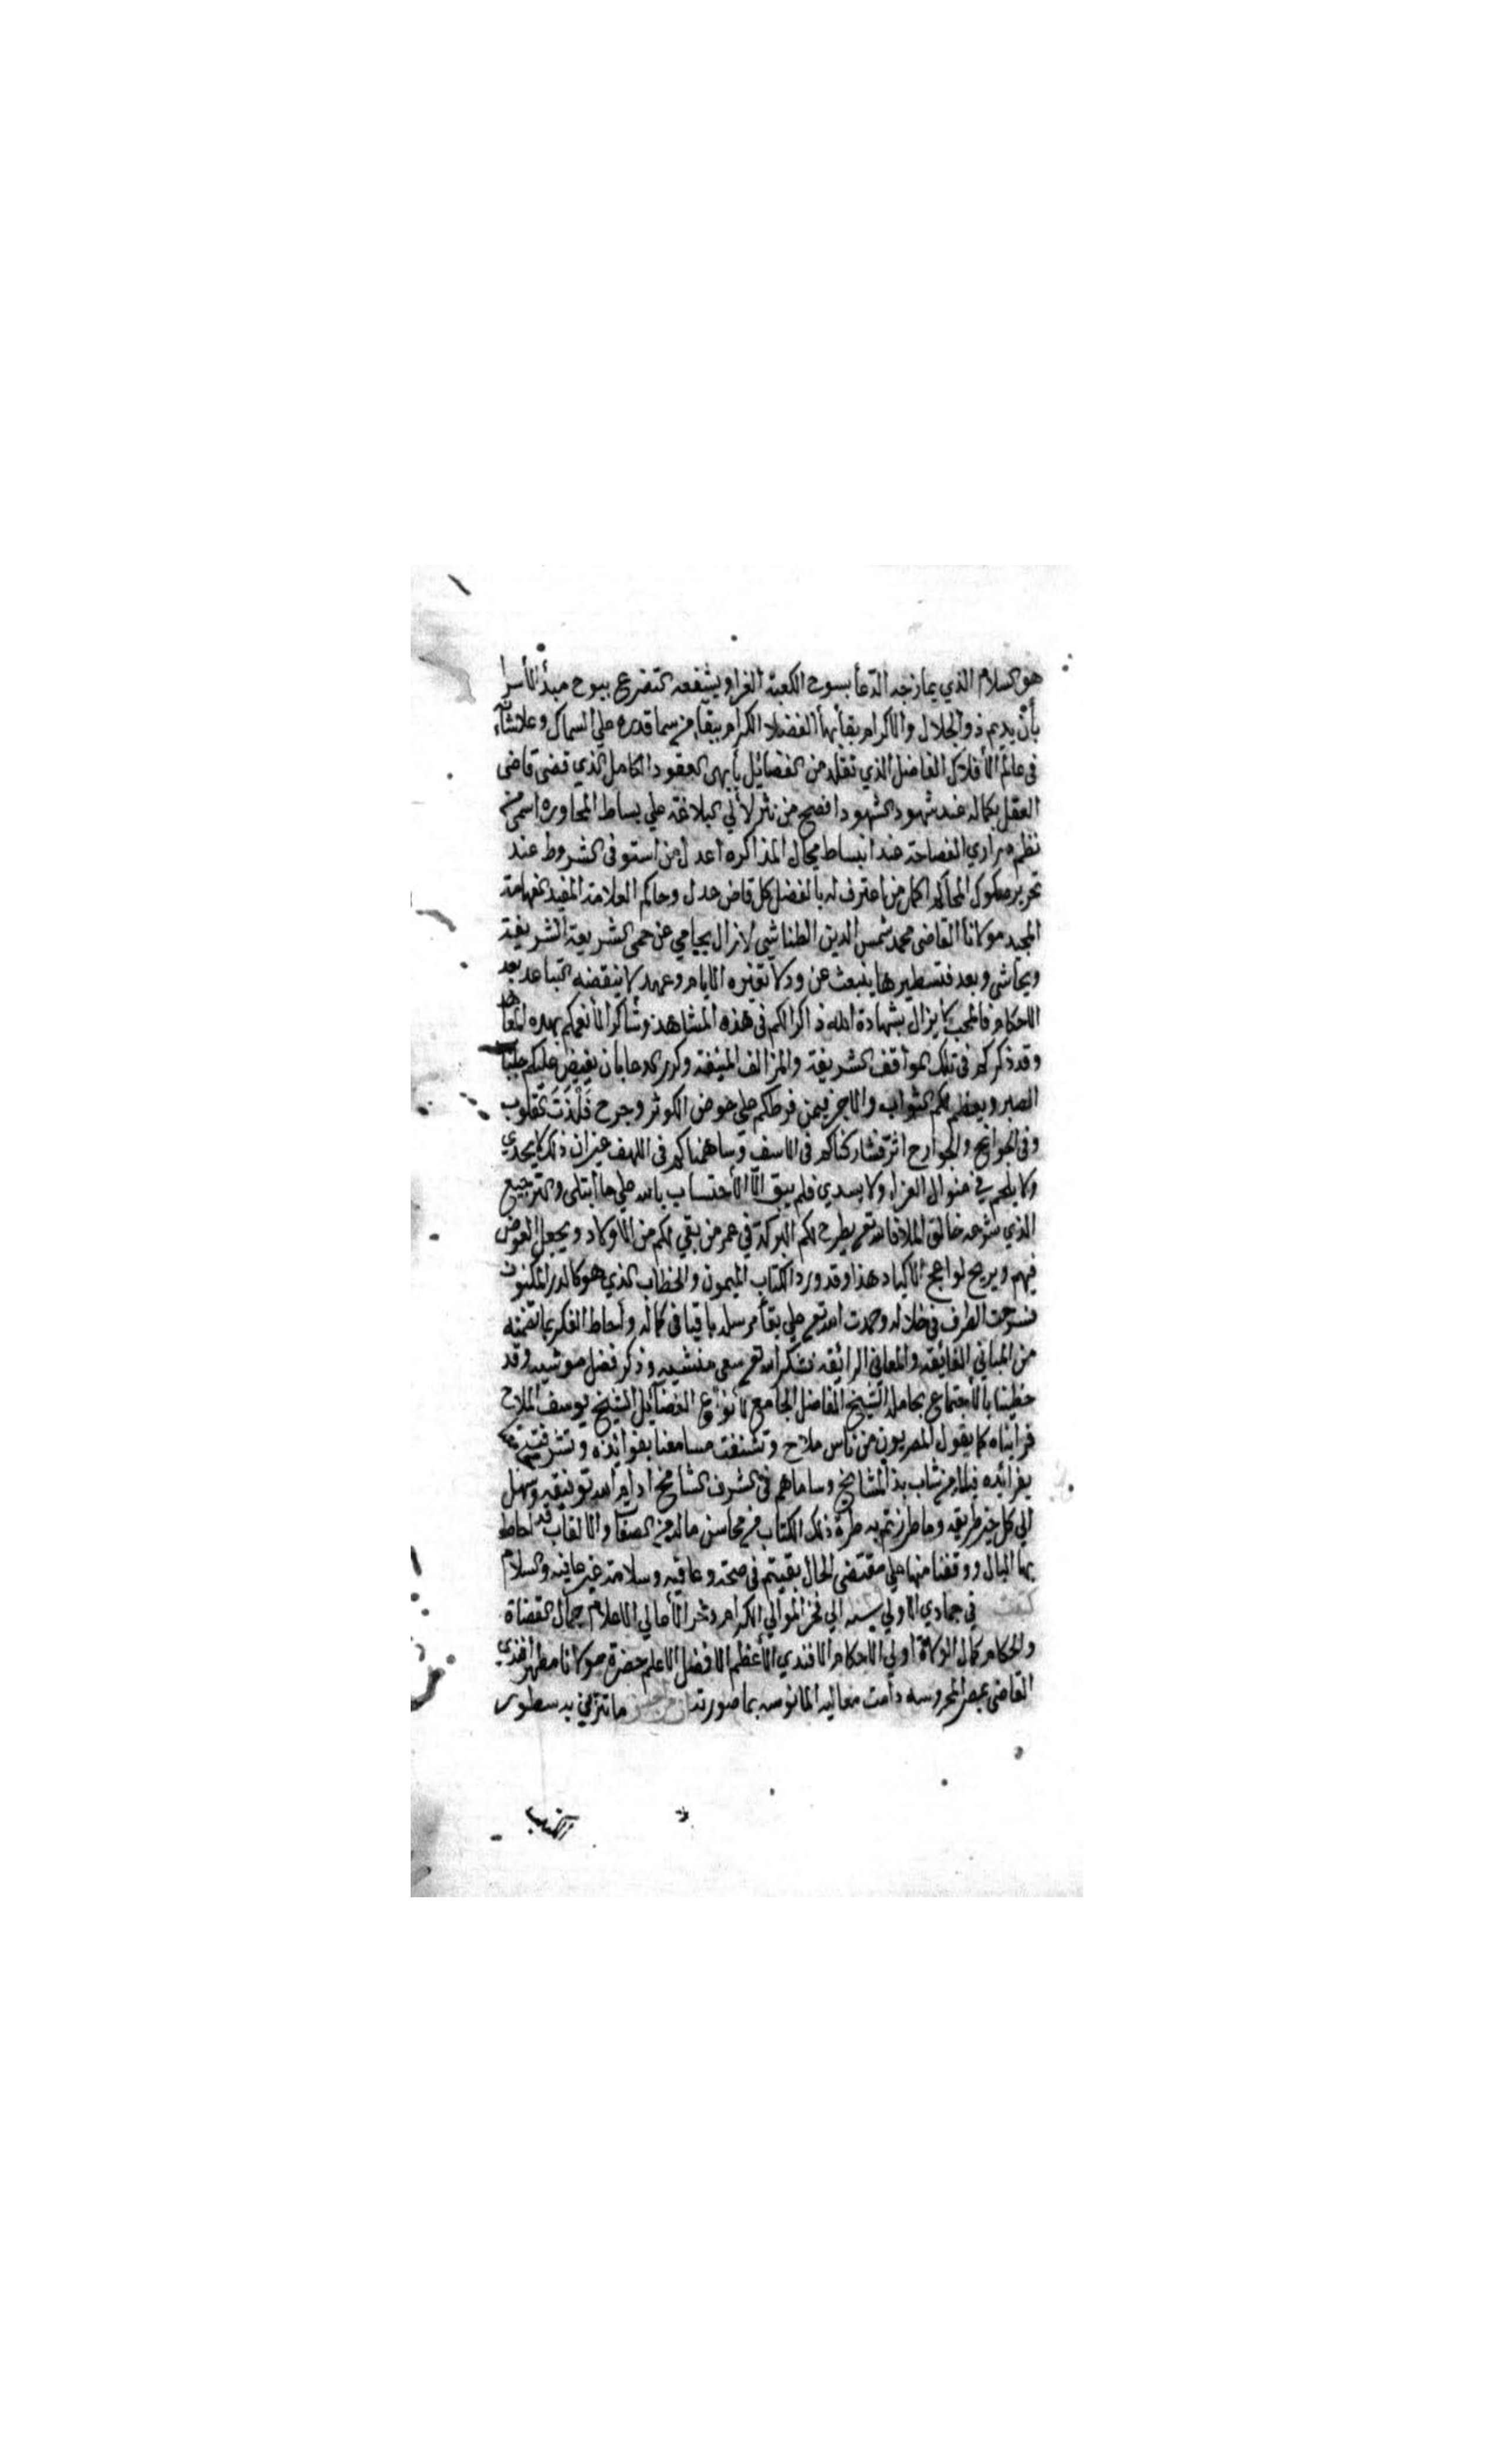 هو السلام الذي يمازجه الدعا بسوح الكعبة الغرا ويشفعه التضرع ببوح مبدأ الأسرا
بأن يديم ذو الجلال والاكرام بقا بها الفضلا الكرام ببقاء من سما قدره علي السماك وعلا شأنه
في عالم الأفلاك الفاضل الذي تقلد من الفضائل بأبهى العقود الكامل الذي قضى قاضي
العقل بكماله عند شهود الشهود افصح من نثر لألي البلاغة علي بساط المحاوره اسمى من
نظم دراري الفصاحة عند انبساط مجال المذاكره اعدل من استوفى الشروط عند
تحرير صكوك المحاكم اكمل من اعترف له بالفضل كل قاض عدل وحاكم العلامة المفيد الفهامة
المجيد مولانا القاضي محمد شمس الدين الطناشي لازال يحامي عن حمى الشريعة الشريفة
ويحاشي وبعد فتسطيرها ينبعث عن ود لا تغيره الايام وعهد لا ينقضه التباعد بعد
الاحكام فالمحب لا يزال بشهادة الله ذاكرا لكم في هذه المشاهد وشاكرا لأنعمكم بهذه المعاهد
وقد ذكركم في تلك المواقف الشريفة والمزالف المنيفه وكرر الدعا بان يفيض عليكم جلباب
الصبر ويعظم لكم الثواب والاجر فيمن فرطكم علي حوض الكوثر وجرح فلذت القلوب
وفي الجوانح والجوارح اثر فشاركناكم في الاسف وساهمناكم في اللهف غير ان ذلك لا يجدي
ولا يلحم في منوال العزاء ولا يسدي فلم يبق الا الأحتساب بالله علي ما أبتلى والترجيع
الذي شرعه خالق الملا فالله تعم يطرح لكم البركة في عمر من بقي لكم من الاولاد ويجعل العوض
فيهم ويريح لواعج الاكباد هذا وقد ورد الكتاب الميمون والخطاب الذي هو كالدر المكنون
فسرحت الطرف في خلاله وحمدت الله تعم علي بقأ مرسله باقيا في كماله ولحاط الفكر بما تضمنه
من المباني الفايقه والمعاني الرائقه فشكر الله تعم سعى منشيه وذكر فضل موشيه وقد
حظينا بالاجتماع بحامله الشيخ الفاضل الجامع لأنواع الفضائل الشيخ يوسف الملاح
فرايناه كما يقول المصريون من ناس ملاح وتشنفت مسامعنا بفوائده وتشرفت
بفرائده فيلا من شاب بذ المشايخ وساماهم في الشرف الشامخ ادام الله توفيقه وسهل
الي كل خير طريقه وما طرزتم به طرة ذلك الكتاب من محاسن ماله من الصفات والالقاب قد احاط
بها البال ووقفنا منها علي مقتضى الحال بقيتم في صحة وعافيه وسلامة غير عافيه والسلام
كتبت في جمادي الاولي سنه الي فخر الموالي الكرام ذخر الأعالي الاعلام جمال القضاة
والحكام كمال الولاة اولي الاحكام الافندي الأعظم الافضل الاعلم حضرة مولانا مظهر افندي
القاضي بمصر المحروسه دامت معاليه المانوسه بما صورته ان من احسن ما تتزين به سطور
الكتاب